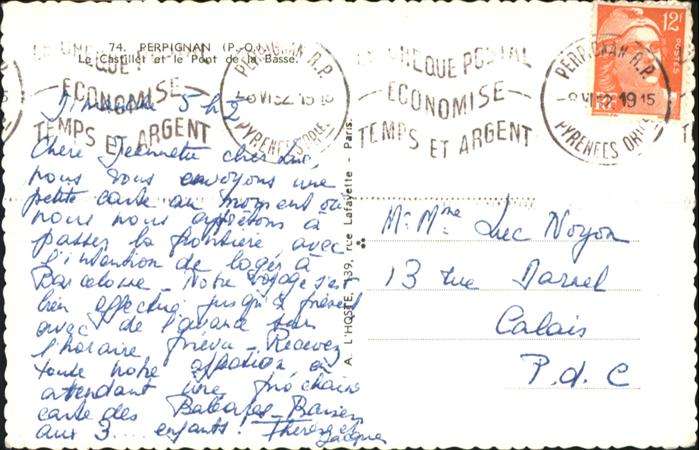 74. PERPIGNAN (P.-O.)
Le Castillet et le Pont de la Basse.
LE CHEQUE POSTAL
ECONOMISE
TEMPS ET ARGENT
PERPIGNAN R.P.
VI 52 1915
PYRENEES ORIles
LE CHEQUE POSTAL
ECONOMISE
TEMPS ET ARGENT
PERPIGNAN R.P.
VI 52 1915
PYRENEES ORIles
12F
POSTES
Dimanche 5 h 2
Chère Jeannette cher Luc,
nous vous envoyons une
petite carte au moment où
nous nous apprêtons à
passer la frontière avec
l'intention de loger à
Barcelone - Notre voyage s'est
bien effectué jusqu'à présent
avec de l'avance sur
l'horaire prévu - Recevez
toute notre affection en
attendant une prochaine
carte des Baléares - Baisers
aux 3 .... enfants. Thérèse et
Jacques
A. L'HOSTE, 139, rue Lafayette - Paris.
Mr Mme Luc Noyon
13 rue Darnel
Calais
P. d. C